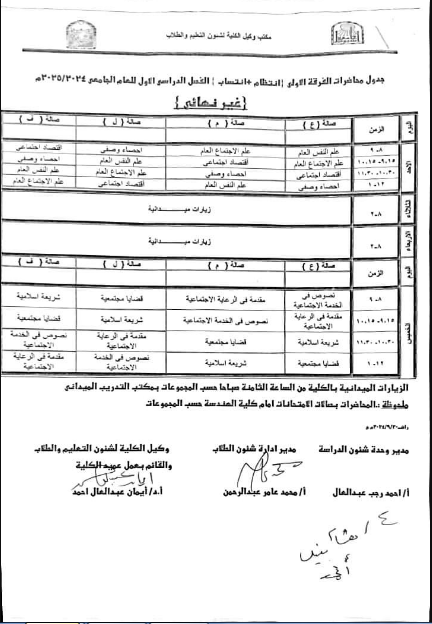 مكتب وكيل الكلية لشئون التعليم والطلاب
جدول محاضرات الفرقة الاولى (انتظام +انتساب ) الفصل الدراسى الاول للعام الجامعى ٢٠٢٥/٢٠٢٤م
(غير نهائى)
اليوم الزمن صالة (ع ) صالة ( م ) صالة ( ل ) صالة ( ف )
الاحد
٨-٩ علم النفس العام علم الاجتماع العام احصاء وصفى أقتصاد اجتماعى
٩.١٥-١٠.١٥ علم الاجتماع العام أقتصاد اجتماعى علم النفس العام احصاء وصفى
١٠.٣٠-١١.٣٠ أقتصاد اجتماعى احصاء وصفى علم الاجتماع العام علم النفس العام
١٢-١ احصاء وصفى علم النفس العام أقتصاد اجتماعى علم الاجتماع العام
الثلاثاء ٨-٢ زيارات ميـــدانية
الاربعاء ٨-٢ زيارات ميـــدانية
اليوم الزمن صالة (ع ) صالة ( م ) صالة ( ل ) صالة ( ف )
الخميس
٨-٩ نصوص فى الخدمة الاجتماعية مقدمة فى الرعاية الاجتماعية قضايا مجتمعية شريعة اسلامية
٩.١٥-١٠.١٥ مقدمة فى الرعاية الاجتماعية نصوص فى الخدمة الاجتماعية شريعة اسلامية قضايا مجتمعية
١٠.٣٠-١١.٣٠ شريعة اسلامية قضايا مجتمعية مقدمة فى الرعاية الاجتماعية نصوص فى الخدمة الاجتماعية
١٢-١ قضايا مجتمعية شريعة اسلامية نصوص فى الخدمة الاجتماعية مقدمة فى الرعاية الاجتماعية
الزيارات الميدانية بالكلية من الساعة الثامنة صباحا حسب المجموعات بمكتب التدريب الميدانى
ملحوظة :.المحاضرات بصالات الامتحانات امام كلية الهندسة حسب المجموعات
مدير وحدة شئون الدراسة مدير ادارة شئون الطلاب وكيل الكلية لشئون التعليم والطلاب
والقائم بعمل عميد الكلية
أ/ احمد رجب عبدالعال أ/ محمد عامر عبدالرحمن أ.د/ أيمان عبدالعال احمد